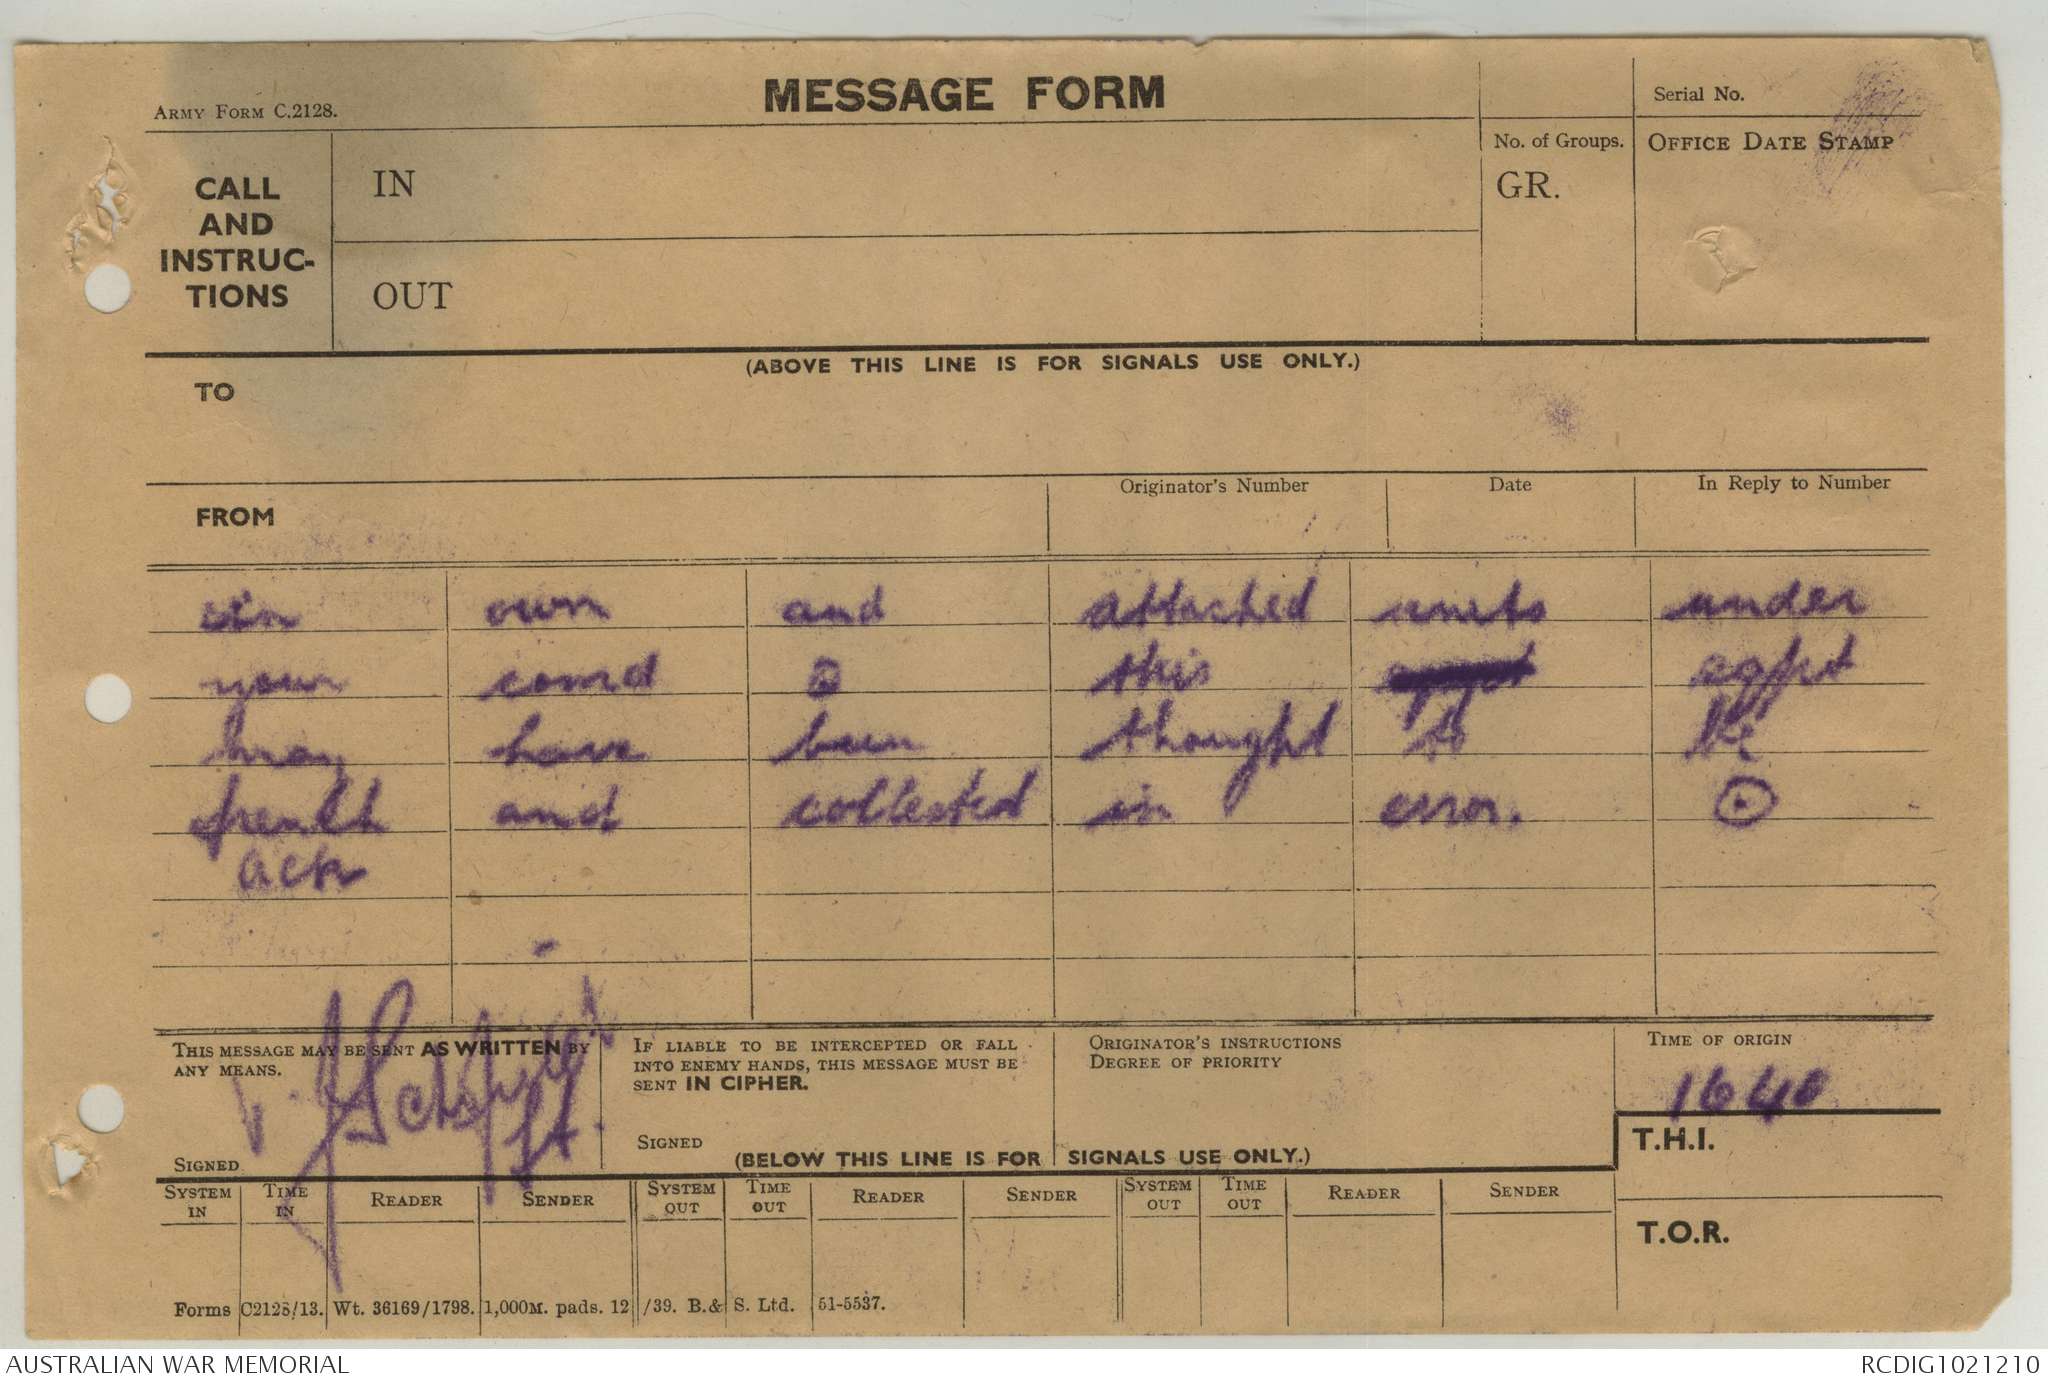 MESSAGE FORM
Army Form C.2128.
Serial No.
CALL AND INSTRUC-TIONS
IN
No. of Groups.
GR.
OFFICE DATE STAMP
OUT
(ABOVE THIS LINE IS FOR SIGNALS USE ONLY.)
TO
FROM
Originator's Number
Date
In Reply to Number
in own and attached units under
your comd ⊙ this eqpt
may have been thought to be
french and collected in error. ⊙
ack
THIS MESSAGE MAY BE SENT AS WRITTEN BY
ANY MEANS.
SIGNED
Lt.
IF LIABLE TO BE INTERCEPTED OR FALL
INTO ENEMY HANDS, THIS MESSAGE MUST BE
SENT IN CIPHER.
SIGNED
ORIGINATOR'S INSTRUCTIONS
DEGREE OF PRIORITY
TIME OF ORIGIN
1640
(BELOW THIS LINE IS FOR SIGNALS USE ONLY.)
T.H.I.
SYSTEM IN
TIME IN
READER
SENDER
SYSTEM OUT
TIME OUT
READER
SENDER
SYSTEM OUT
TIME OUT
READER
SENDER
T.O.R.
Forms C2128/13. Wt. 36169/1798. 1,000M. pads. 12/39. B.& S. Ltd. 51-5537.
AUSTRALIAN WAR MEMORIAL
RCDIG1021210